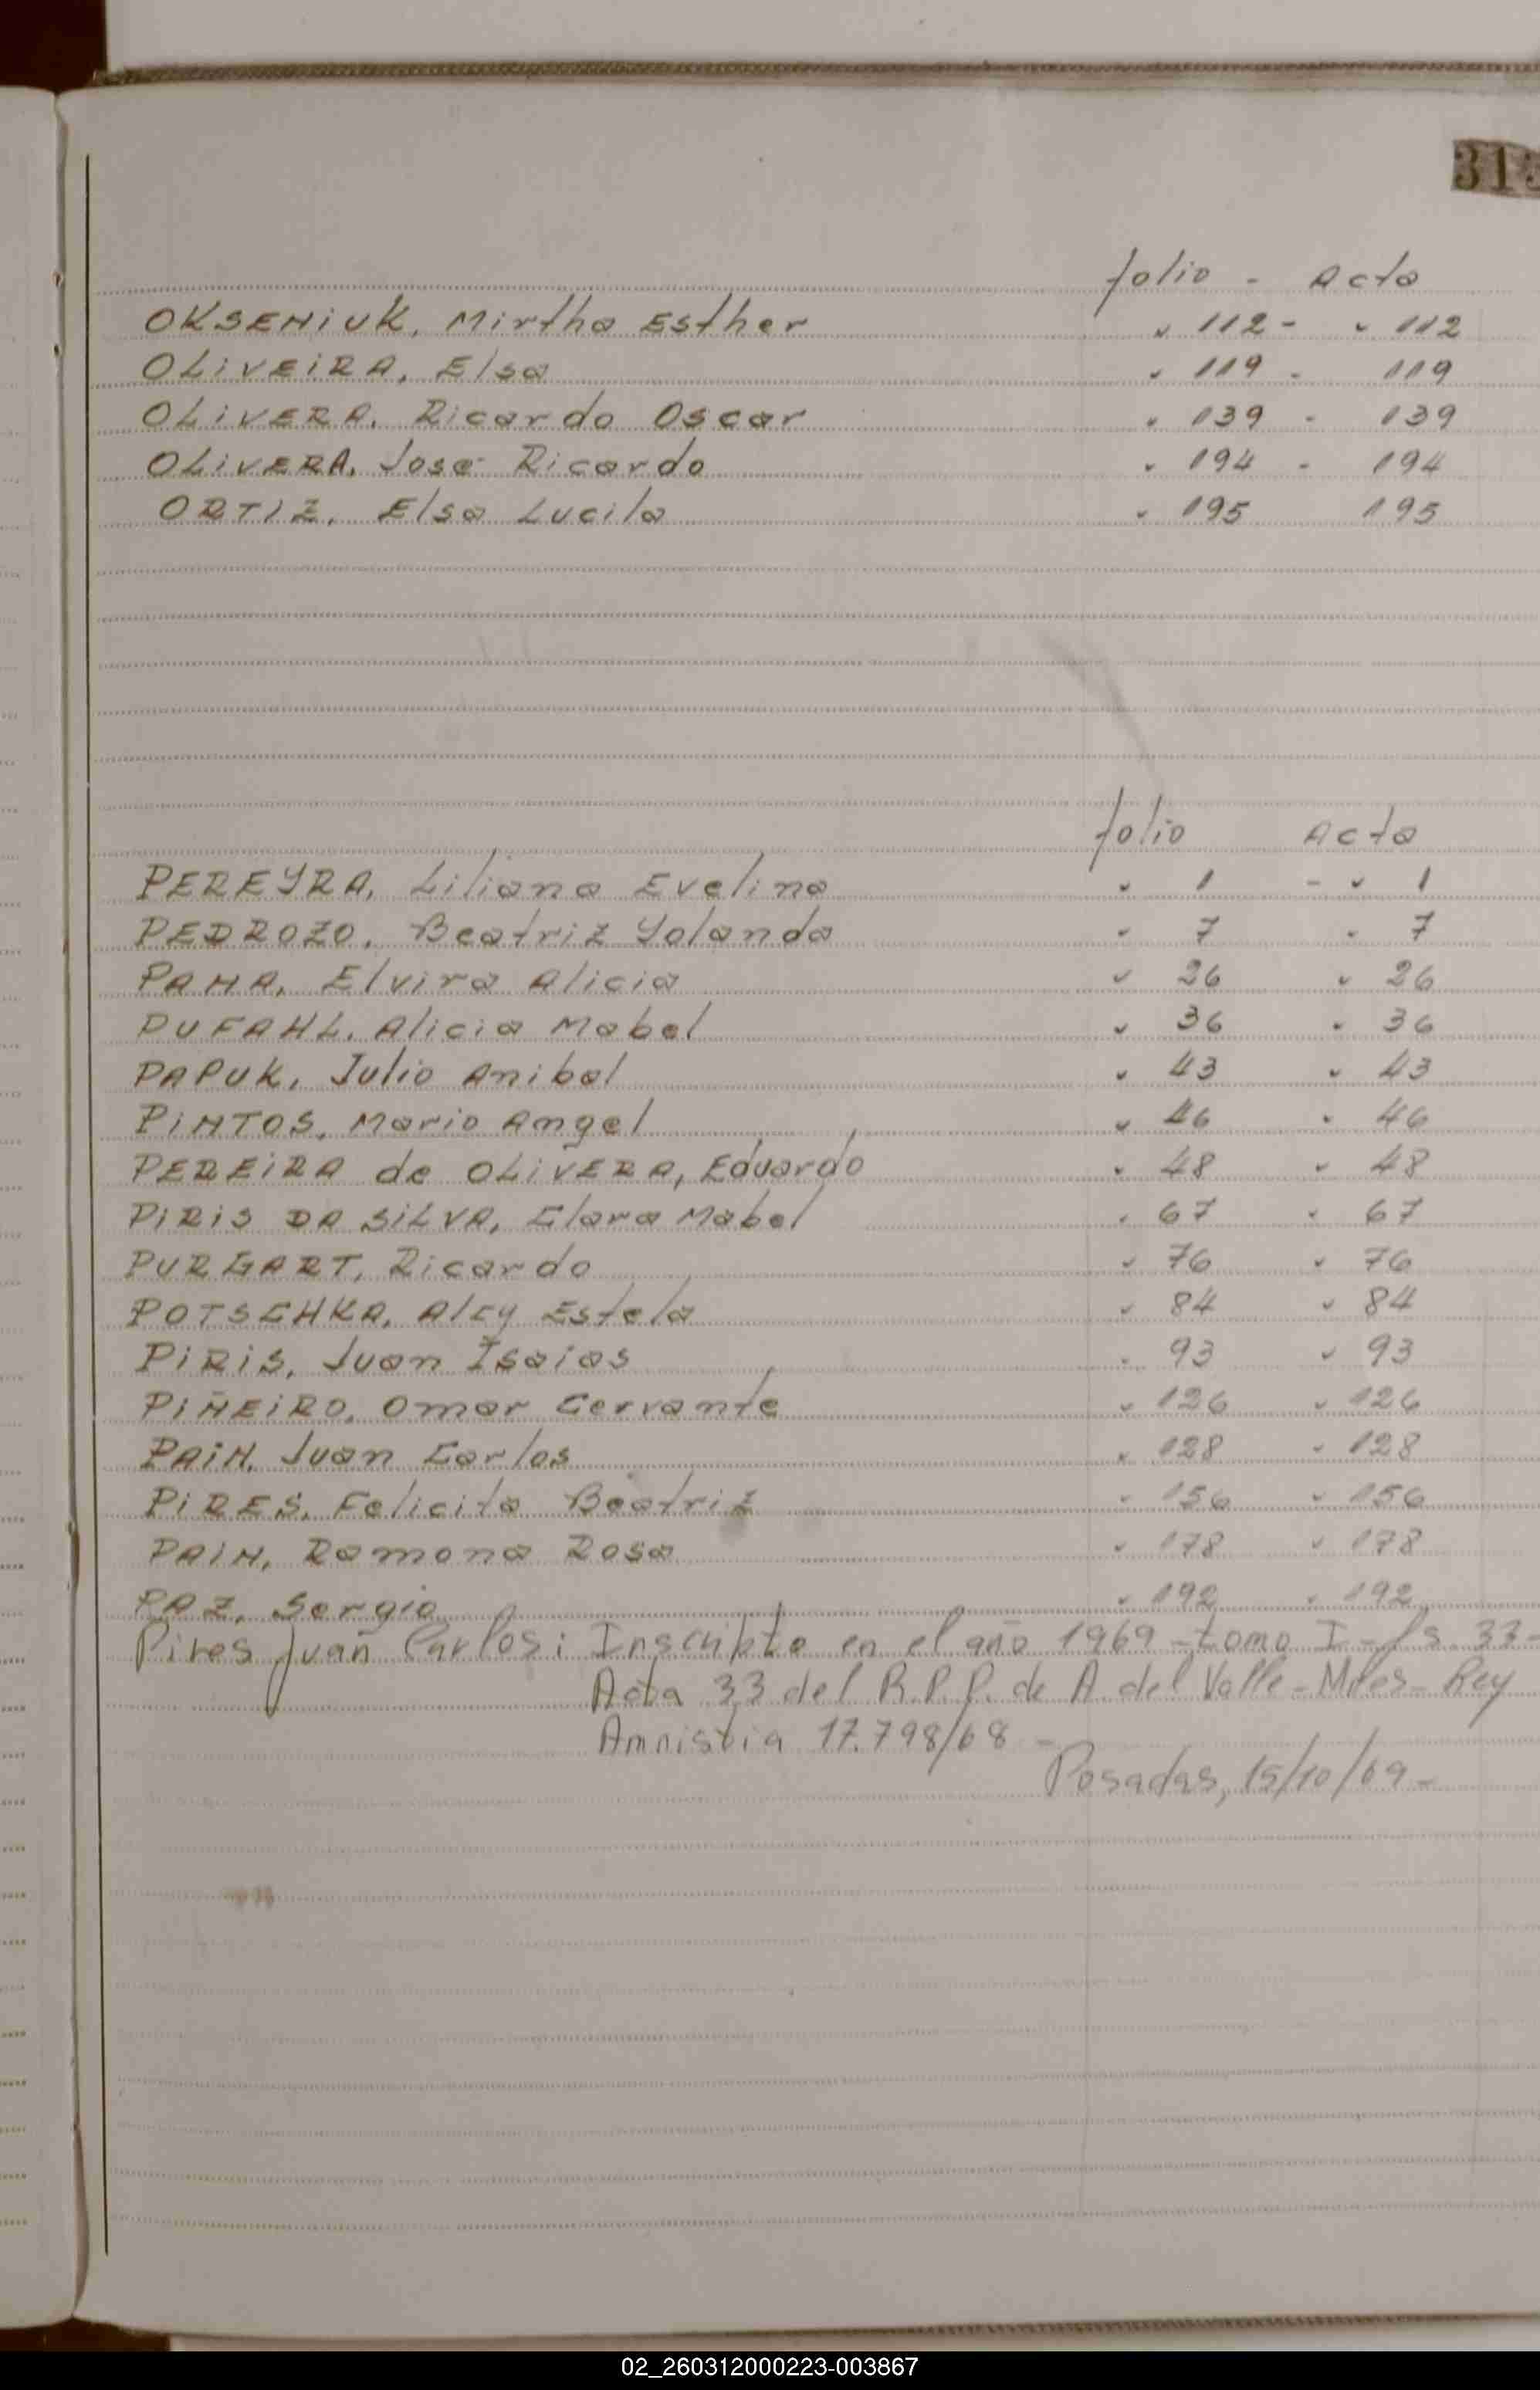 31
folio - Acta
OKSENIUK, Mirtha Esther " 112 - " 112
OLIVEIRA, Elsa " 119 - 119
OLIVERA, Ricardo Oscar " 139 - 139
OLIVERA, José Ricardo " 194 - 194
ORTIZ, Elsa Lucila " 195 195
folio Acta
PEREYRA, Liliana Evelina " 1 - " 1
PEDROZO, Beatriz Yolanda " 7 " 7
PANA, Elvira Alicia " 26 " 26
PUFAHL, Alicia Mabel " 36 " 36
PAPUK, Julio Anibal " 43 " 43
PINTOS, Mario Angel " 46 " 46
PEREIRA de OLIVERA, Eduardo " 48 " 48
PIRIS DA SILVA, Clara Mabel " 67 " 67
PURGART, Ricardo " 76 " 76
POTSCHKA, Alcy Estela " 84 " 84
PIRIS, Juan Isaias " 93 " 93
PIÑEIRO, Omar Cervante " 126 " 126
PAIN, Juan Carlos " 128 " 128
PIRES, Felicita Beatriz " 156 " 156
PAIN, Ramona Rosa " 178 " 178
PAZ, Sergio " 192 " 192
Pires Juan Carlos: Inscripto en el año 1969 - tomo I - fs. 33 -
Acta 33 del R.P.P. de A. del Valle - Mnes - Rey
Amnistia 17.798/68 -
Posadas, 15/10/69 -
02_260312000223-003867